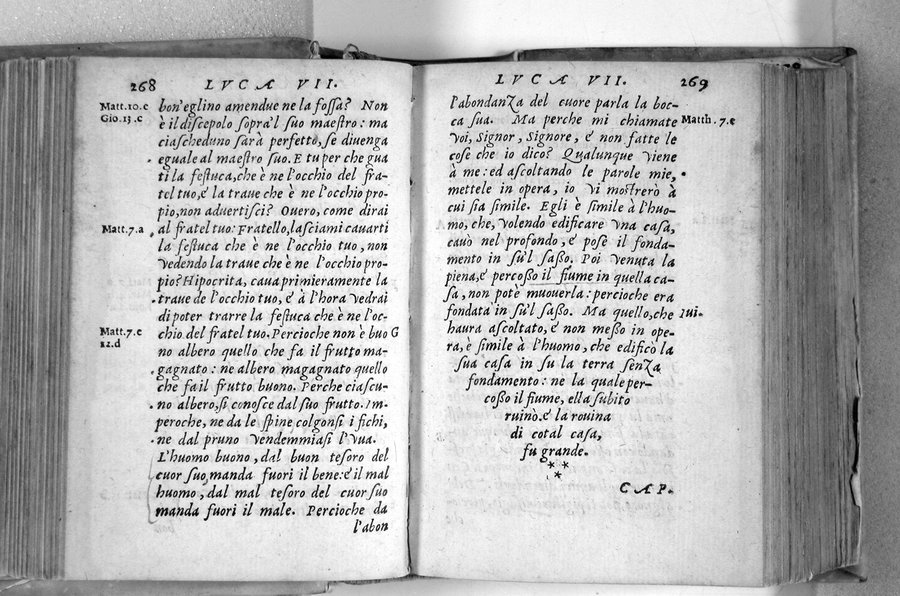 268
LVCA VII.
Matt.10.c
Gio.13.c
bon'eglino amendue ne la fossa? Non
è il discepolo sopra'l suo maestro: ma
ciascheduno sarà perfetto, se diuenga
eguale al maestro suo. E tu per che gua
ti la festuca, che è ne l'occhio del fra-
tel tuo, & la traue che è ne l'occhio pro-
pio, non aduertisci? Ouero, come dirai
Matt.7.a
al fratel tuo: Fratello, lasciami cauarti
la festuca che è ne l'occhio tuo, non
vedendo la traue che è ne l'occhio pro-
pio? Hipocrita, caua primieramente la
traue de l'occhio tuo, & à l'hora vedrai
di poter trarre la festuca che è ne l'oc-
Matt.7.c
12.d
chio del fratel tuo. Percioche non è buo G
no albero quello che fa il frutto ma-
gagnato: ne albero magagnato quello
che fa il frutto buono. Perche ciascu-
no albero, si conosce dal suo frutto. Im-
peroche, ne da le spine colgonsi i fichi,
ne dal pruno vendemmiasi l'vua.
L'huomo buono, dal buon tesoro del
cuor suo, manda fuori il bene: & il mal
huomo, dal mal tesoro del cuor suo
manda fuori il male. Percioche da
l'abon
LVCA VII.
269
l'abondanza del cuore parla la boc-
ca sua. Ma perche mi chiamate
Matth.7.c
voi, Signor, Signore, & non fatte le
cose che io dico? Qualunque viene
à me: ed ascoltando le parole mie,
mettele in opera, io vi mostrerò à
cui sia simile. Egli è simile à l'huo-
mo, che, volendo edificare vna casa,
cauò nel profondo, & pose il fonda-
mento in su'l sasso. Poi venuta la
piena, & percosso il fiume in quella ca-
sa, non potè muouerla: percioche era
fondata in su'l sasso. Ma quello, che
Iui.
haura ascoltato, & non messo in ope-
ra, è simile à l'huomo, che edificò la
sua casa in su la terra senza
fondamento: ne la quale per-
cosso il fiume, ella subito
ruinò. & la rouina
di cotal casa,
fu grande.
CAP.